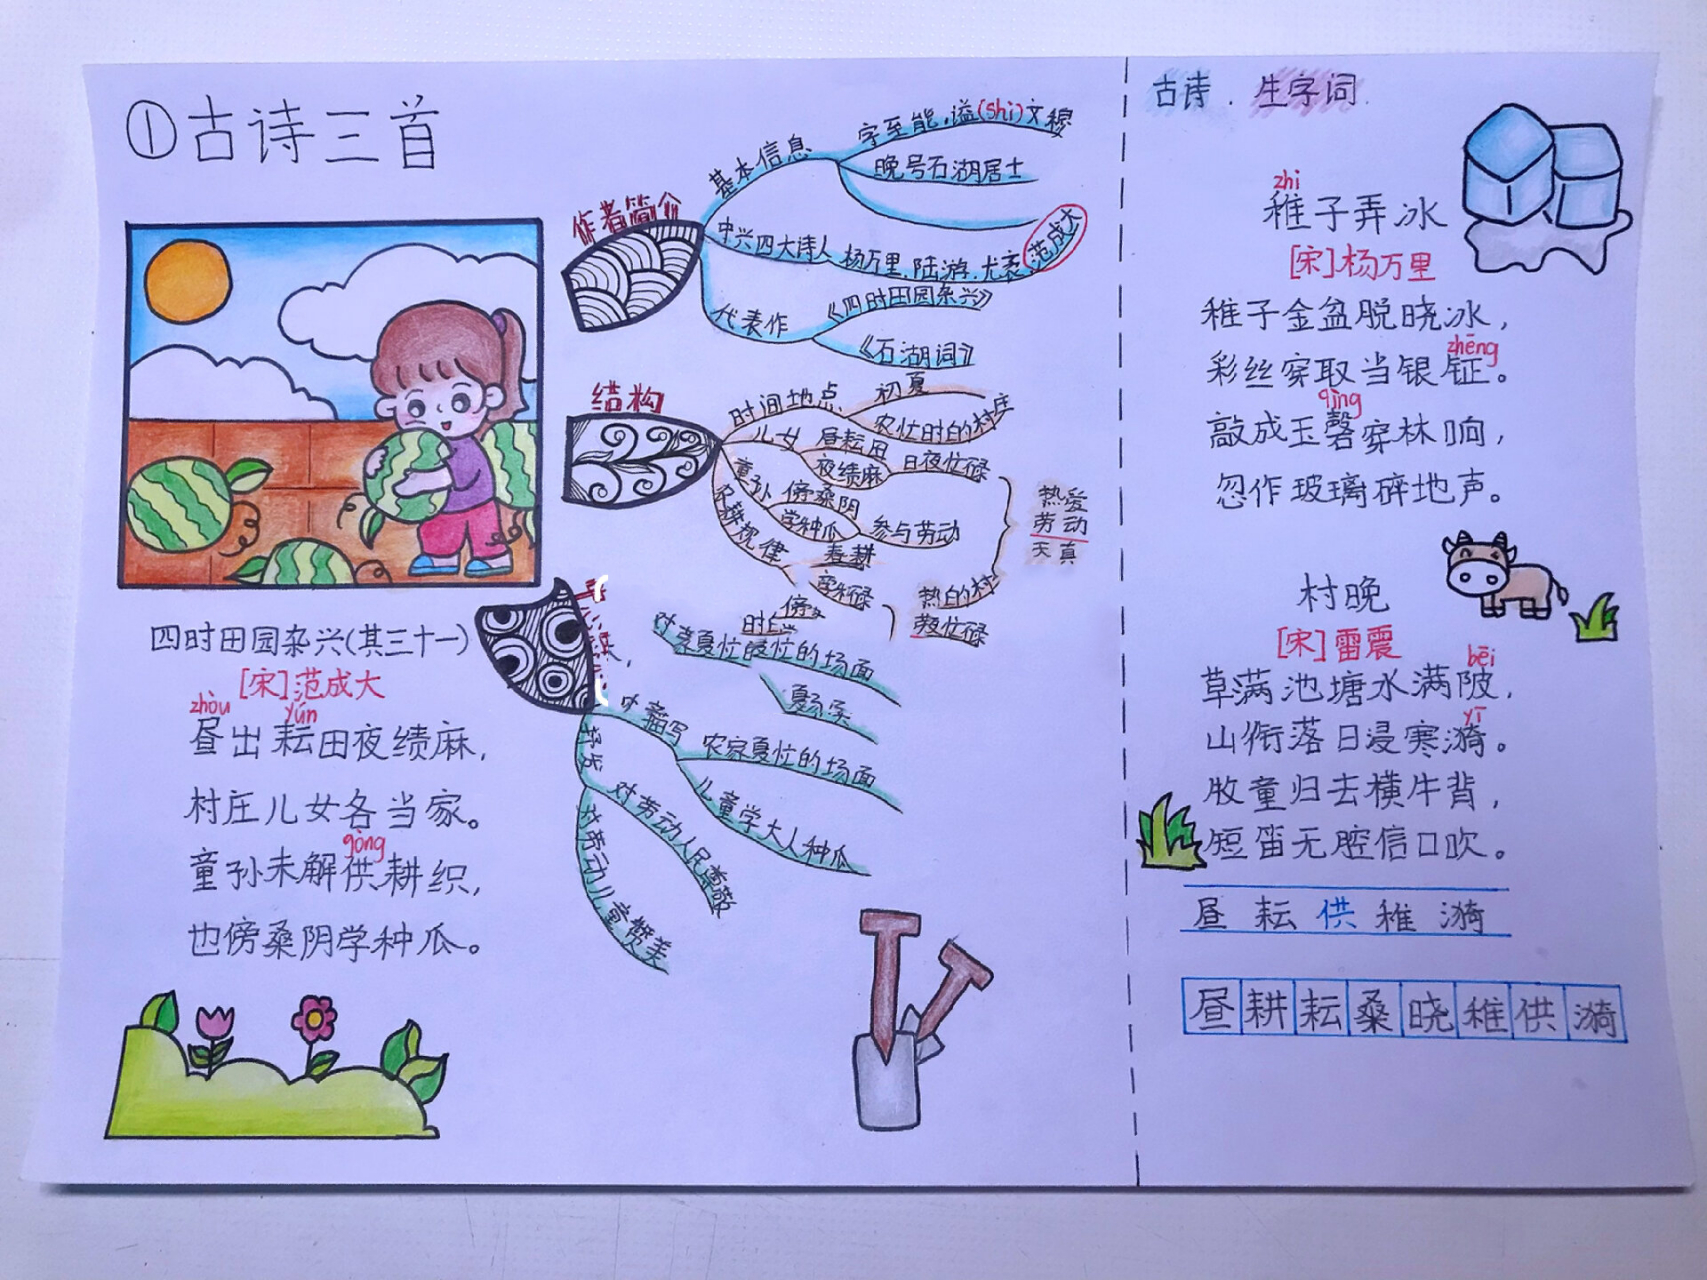 ①古诗三首
四时田园杂兴(其三十一)
[宋]范成大
zhòu
yún
昼出耘田夜绩麻，
村庄儿女各当家。
gòng
童孙未解供耕织，
也傍桑阴学种瓜。
作者简介
基本信息
字至能，谥(shì)文穆
晚号石湖居士
中兴四大诗人 杨万里．陆游．尤袤．范成大
代表作
《四时田园杂兴》
《石湖词》
结构
时间地点
初夏
农忙时的村庄
儿女
昼耘田
夜绩麻
日夜忙碌
童孙
傍桑阴
学种瓜
参与劳动
农耕规律
春耕
热爱
劳动
天真
描写
农家夏忙的场面
儿童学大人种瓜
抒发
对劳动人民尊敬
对劳动儿童赞美
古诗．生字词
zhì
稚子弄冰
[宋]杨万里
稚子金盆脱晓冰，
zhēng
彩丝穿取当银钲。
qìng
敲成玉磬穿林响，
忽作玻璃碎地声。
村晚
[宋]雷震
bēi
草满池塘水满陂，
yī
山衔落日浸寒漪。
牧童归去横牛背，
短笛无腔信口吹。
昼 耘 供 稚 漪
昼耕耘桑晓稚供漪